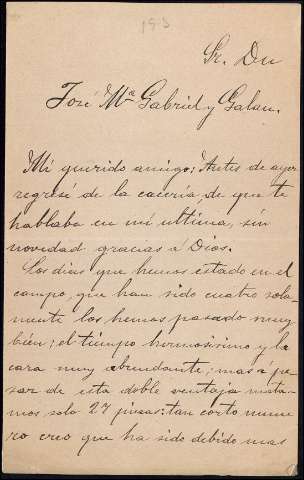 193
Sr. Dn
José Mª Gabriel y Galan.
Mi querido amigo: Antes de ayer
regresé de la caceria, de que te
hablaba en mi ultima, sin
novedad gracias a Dios.
Los dias que hemos estado en el
campo, que han sido cuatro sola-
mente los hemos pasado muy
bien; el tiempo hermosisimo y la
caza muy abundante; mas á pe-
sar de esta doble ventaja mata-
mos solo 27 piezas: tan corto nume-
ro creo que ha sido debido mas